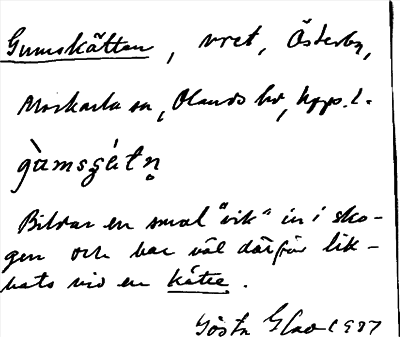 Gumskätten, vret, Österby,
Morkarla sn, Olands hd, Upps. l.
gùmsʂétn̥
Bildar en smal "vik" in i sko-
gen och har väl därför lik-
nats vid en kätte.
Gösta 1937